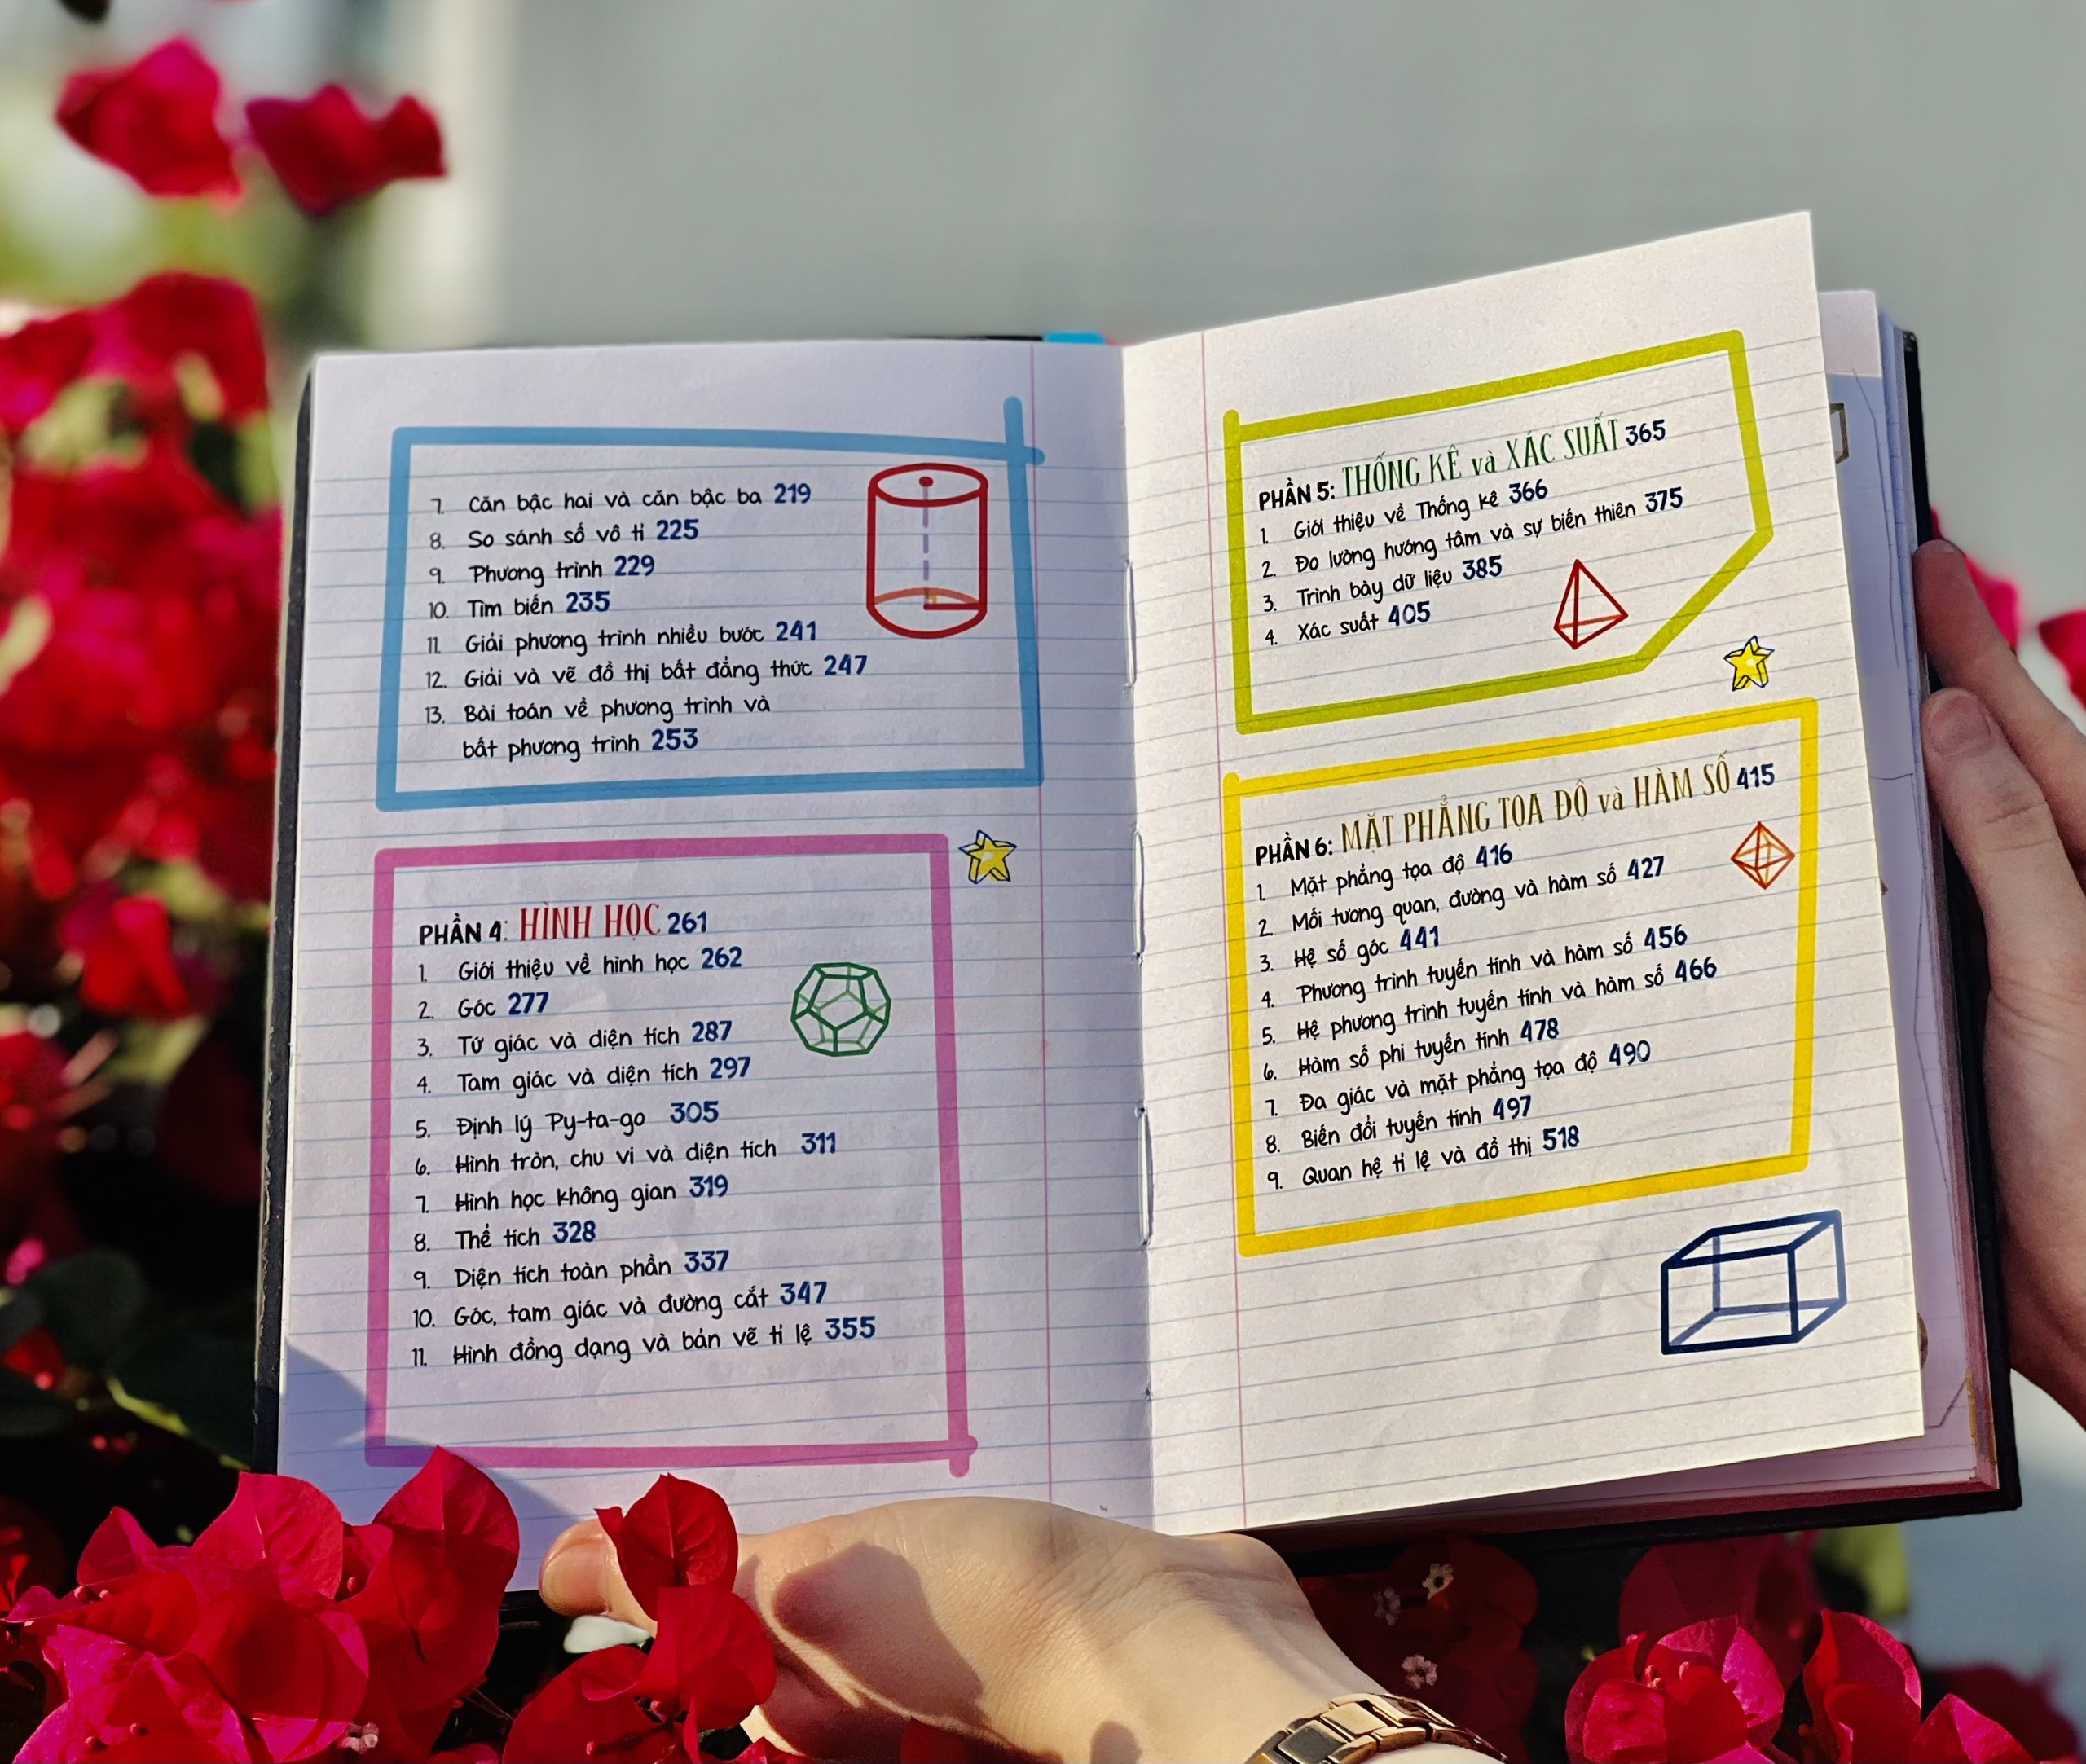 7. Căn bậc hai và căn bậc ba 219
8. So sánh số vô tỉ 225
9. Phương trình 229
10. Tìm biến 235
11. Giải phương trình nhiều bước 241
12. Giải và vẽ đồ thị bất đẳng thức 247
13. Bài toán về phương trình và
bất phương trình 253
PHẦN 4: HÌNH HỌC 261
1. Giới thiệu về hình học 262
2. Góc 277
3. Tứ giác và diện tích 287
4. Tam giác và diện tích 297
5. Định lý Py-ta-go 305
6. Hình tròn, chu vi và diện tích 311
7. Hình học không gian 319
8. Thể tích 328
9. Diện tích toàn phần 337
10. Góc, tam giác và đường cắt 347
11. Hình đồng dạng và bản vẽ tỉ lệ 355
PHẦN 5: THỐNG KÊ và XÁC SUẤT 365
1. Giới thiệu về Thống kê 366
2. Đo lường hướng tâm và sự biến thiên 375
3. Trình bày dữ liệu 385
4. Xác suất 405
PHẦN 6: MẶT PHẲNG TỌA ĐỘ và HÀM SỐ 415
1. Mặt phẳng tọa độ 416
2. Mối tương quan, đường và hàm số 427
3. Hệ số góc 441
4. Phương trình tuyến tính và hàm số 456
5. Hệ phương trình tuyến tính và hàm số 466
6. Hàm số phi tuyến tính 478
7. Đa giác và mặt phẳng tọa độ 490
8. Biến đổi tuyến tính 497
9. Quan hệ tỉ lệ và đồ thị 518